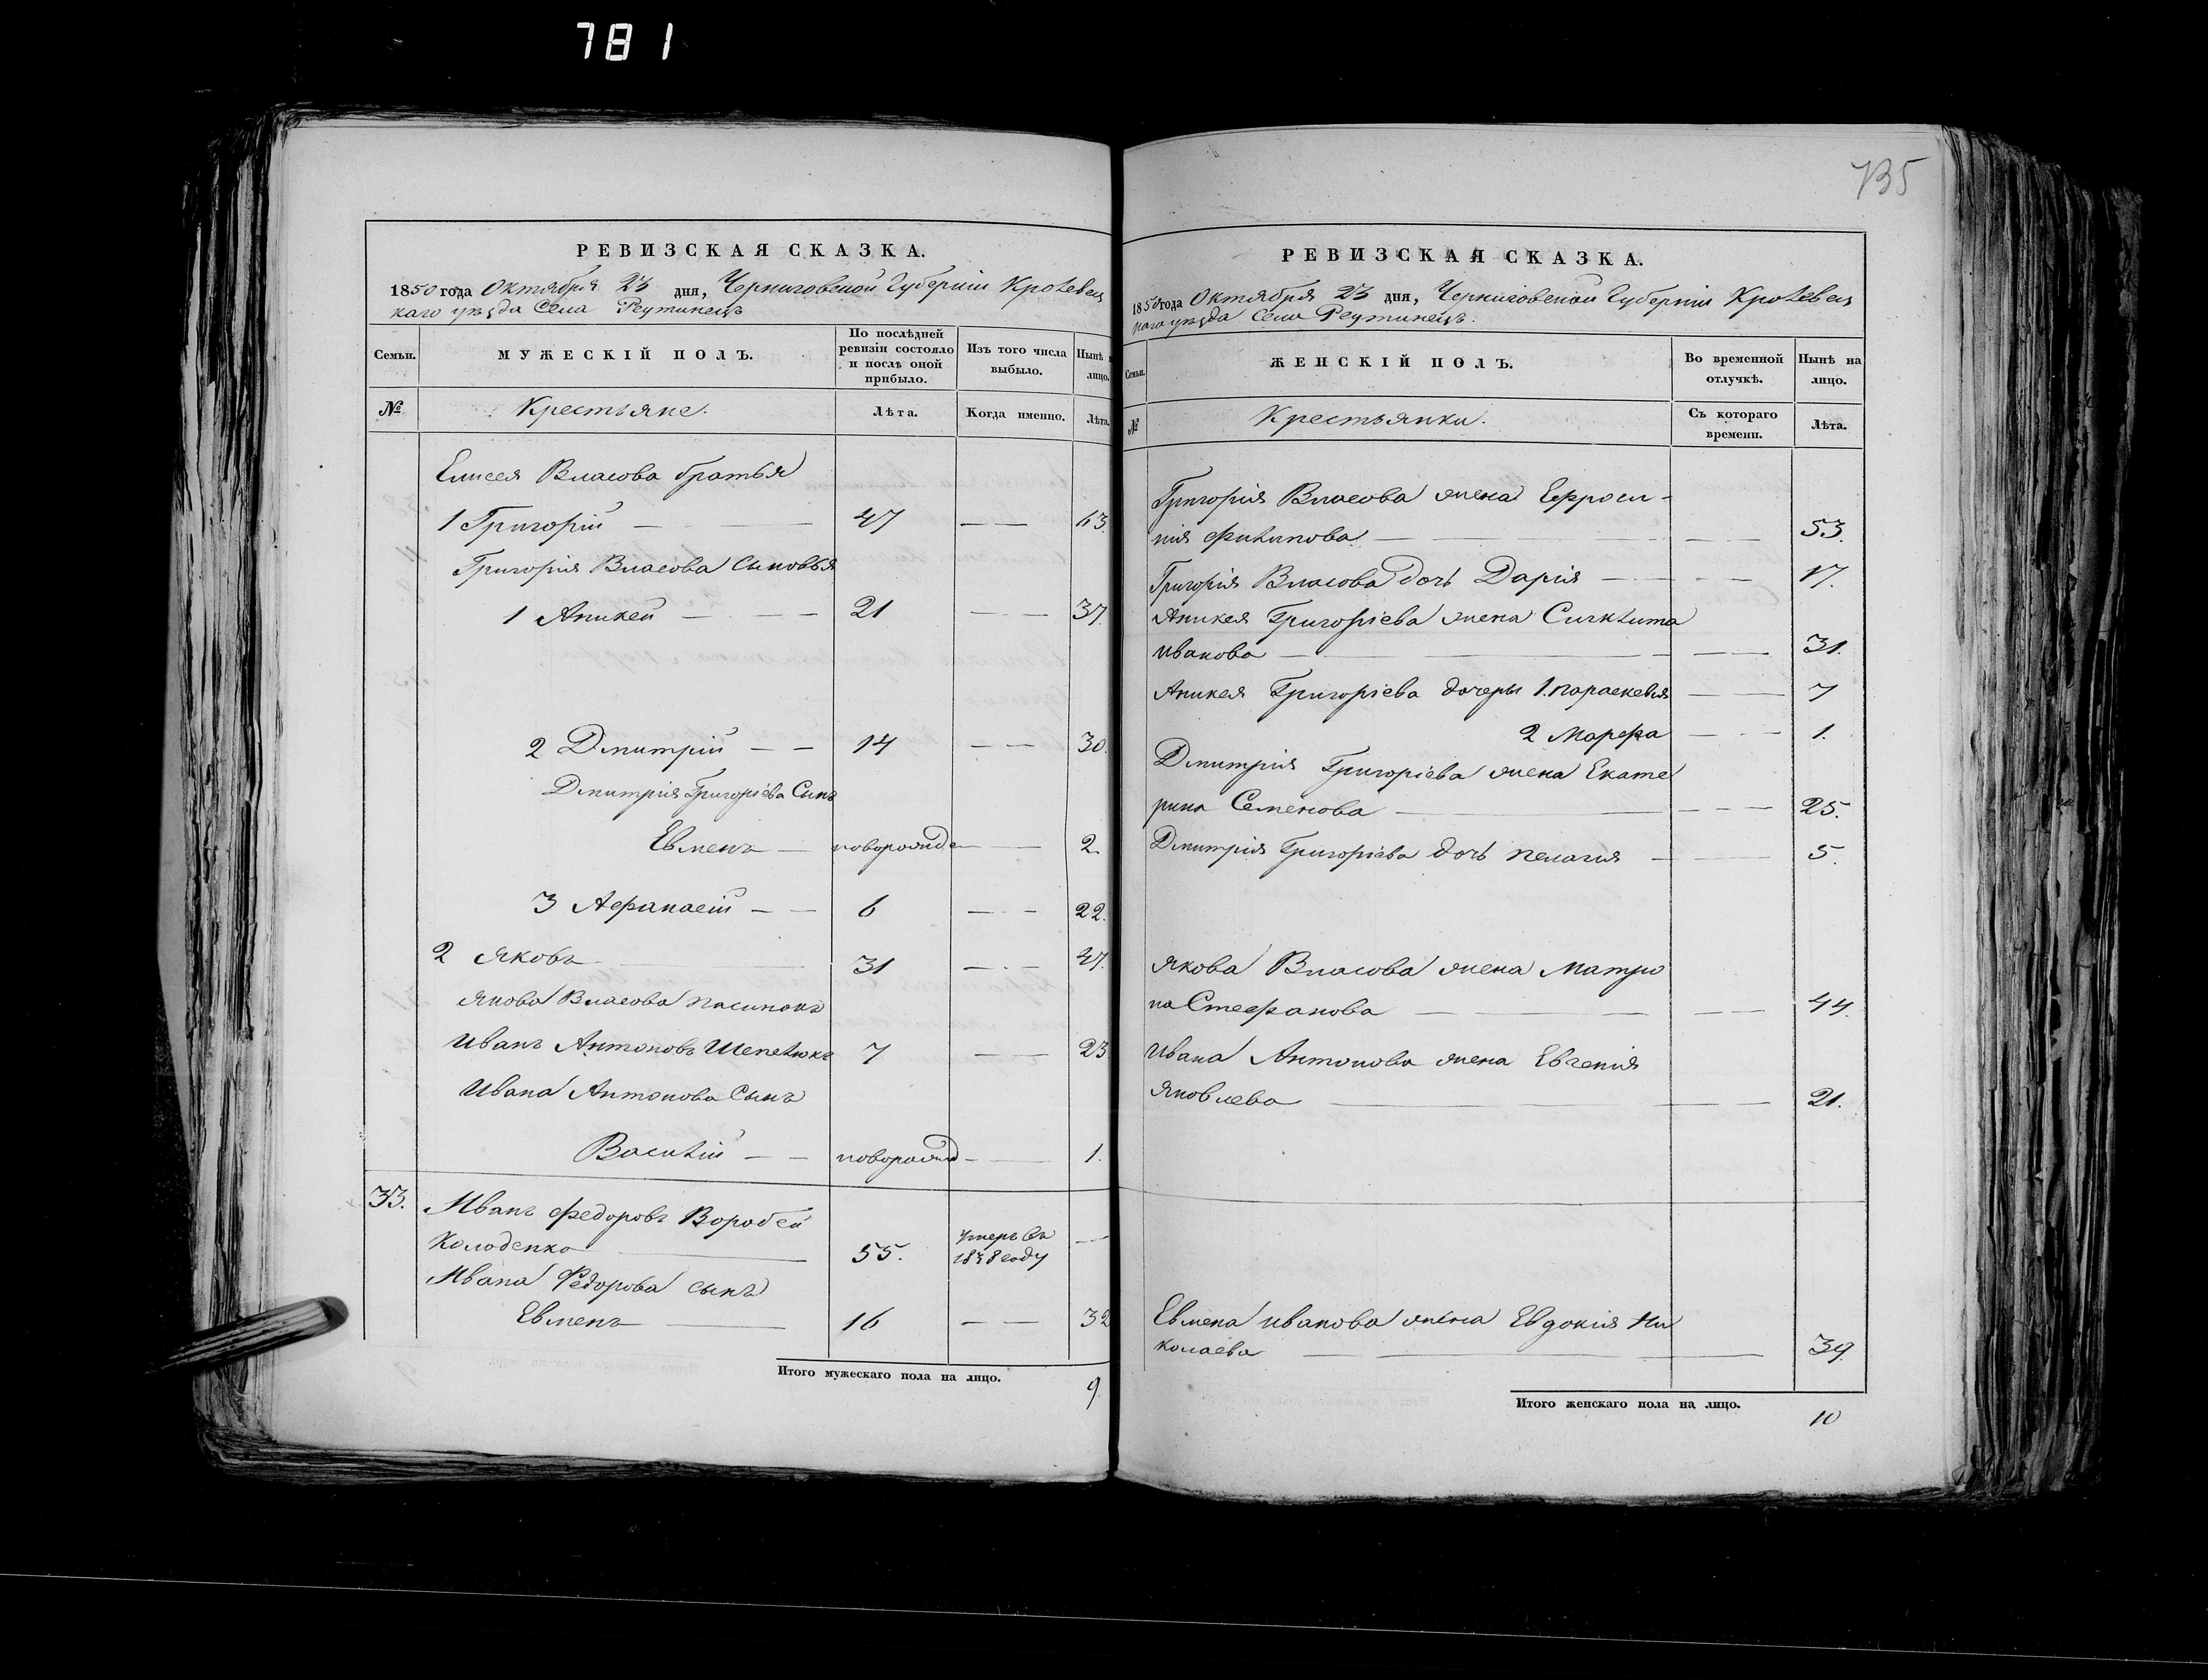 781
РЕВИЗСКАЯ СКАЗКА.
1850 года Октября 23 дня, Черниговской Губерніи Кролевец
каго уѣзда Села Реутинецъ
Семьи.
МУЖЕСКІЙ ПОЛЪ.
По послѣдней ревизіи состояло и послѣ оной прибыло.
Изъ того числа выбыло.
Нынѣ н лицо.
№
Крестьяне.
Лѣта.
Когда именно.
Лѣта.
Елисея Власова братья
1 Григорій — 47 — — 63.
Григорія Власова Сыновья
1 Аникей — — 21 — — 37.
2 Дмитрій — — 14 — — 30.
Дмитрія Григоріева Сынъ
Евменъ — новорожде — — 2.
3 Афанасій — — 6 — — 22.
2 Яковъ — 31 — — 47.
Якова Власова пасинокъ
Иванъ Антоновъ Шепелюкъ 7 — — 23
Ивана Антонова Сынъ
Василій — — новорожд — — 1.
33. Иванъ Федоровъ Воробей
Колоденко — 55. умеръ въ 1838 году —
Ивана Федорова сынъ
Евменъ — 16 — — 32
Итого мужескаго пола на лицо.
9
735
РЕВИЗСКАЯ СКАЗКА.
1850 года Октября 23 дня, Черниговской Губерніи Кролевец
каго уѣзда Села Реутинецъ.
Семьи.
ЖЕНСКІЙ ПОЛЪ.
Во временной отлучкѣ.
Нынѣ на лицо.
№
Крестьянки.
Съ котораго времени.
Лѣта.
Григорія Власова жена Ефроси-
нія Филипова — — — 53.
Григорія Власова дочь Дарія — — — 17.
Аникея Григоріева жена Сикклита
Иванова — — — 31.
Аникея Григоріева дочеры 1. Параскевія — — 7
2 Марфа — — 1.
Дмитрія Григоріева жена Екате
рина Семенова — — — 25.
Дмитрія Григоріева дочь Пелагия — — 5.
Якова Власова жена Матро
на Стефанова — — — 44.
Ивана Антонова жена Евгенія
Яковлева — — — 21.
Евмена Иванова жена Евдокия Ни
колаева — — — 39.
Итого женскаго пола на лицо.
10